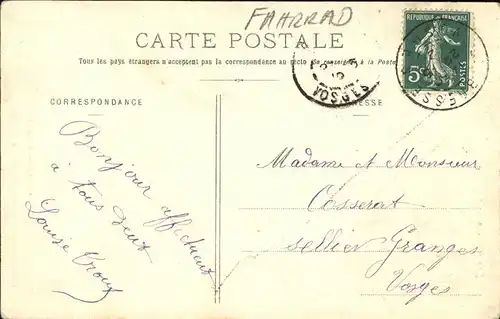 FAHRRAD
CARTE POSTALE
Tous les pays étrangers n'acceptent pas la correspondance au recto (Se renseigner à la Poste
RÉPUBLIQUE FRANÇAISE
5c
POSTES
VOSGES
CORRESPONDANCE
ADRESSE
Bonjour affectueux
à tous deux
Louise
Madame et Monsieur
Cosserat
sellier Granges
Vosges